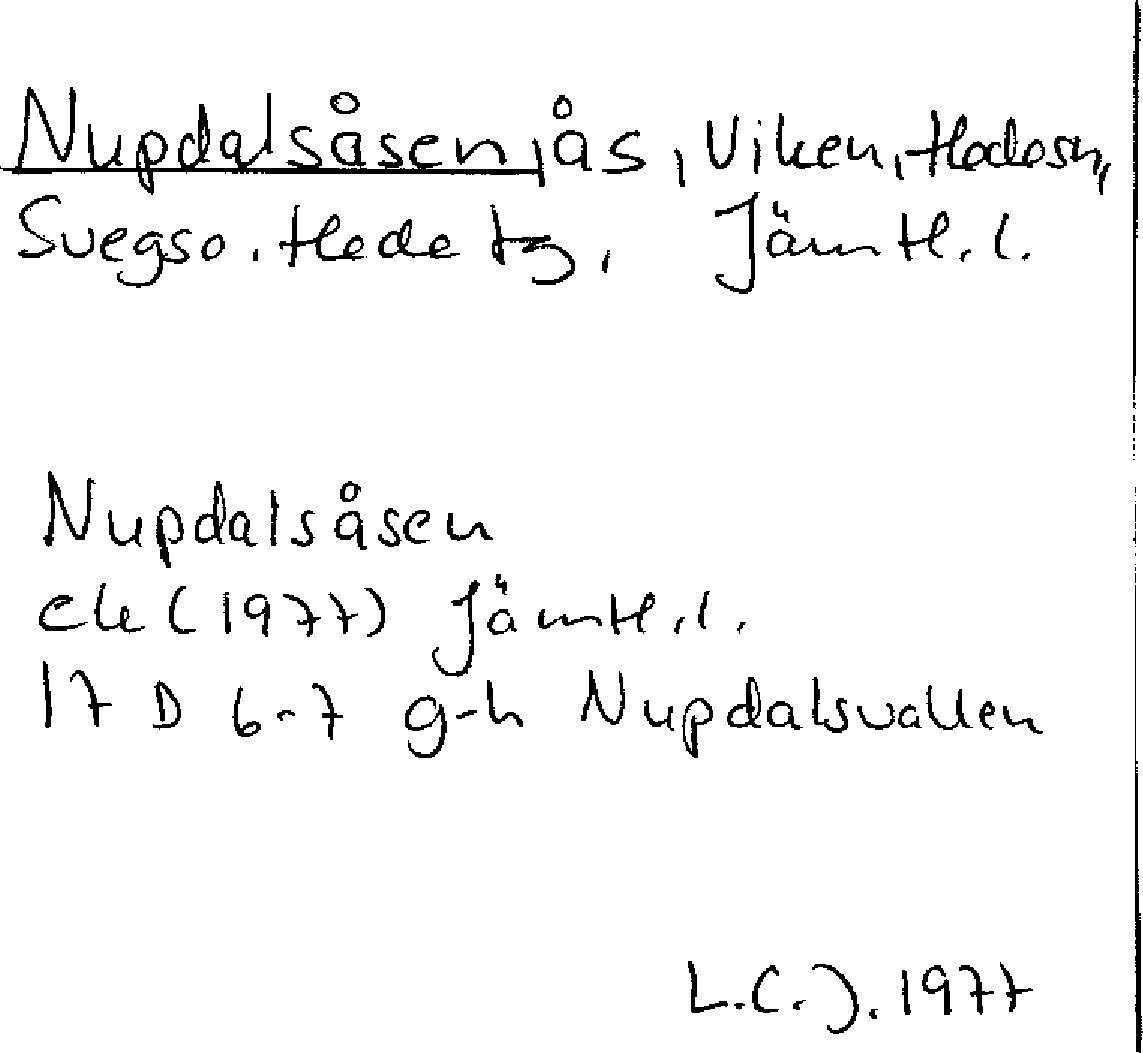 Nupdalsåsen, ås, Viken, Hedesn,
Svegso. Hede tg, Jämtl. l.
Nupdalsåsen
ek (1977) Jämtl. l.
17 D 6-7 g-h Nupdalsvallen
L.C.J. 1977